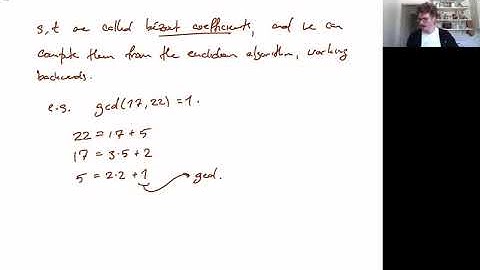 s,t are called bézout coefficients, and we can
compute them from the euclidean algorithm, working
backwards.
e.g. gcd(17,22)=1.
22 = 17 + 5
17 = 3·5 + 2
5 = 2·2 + 1 gcd.